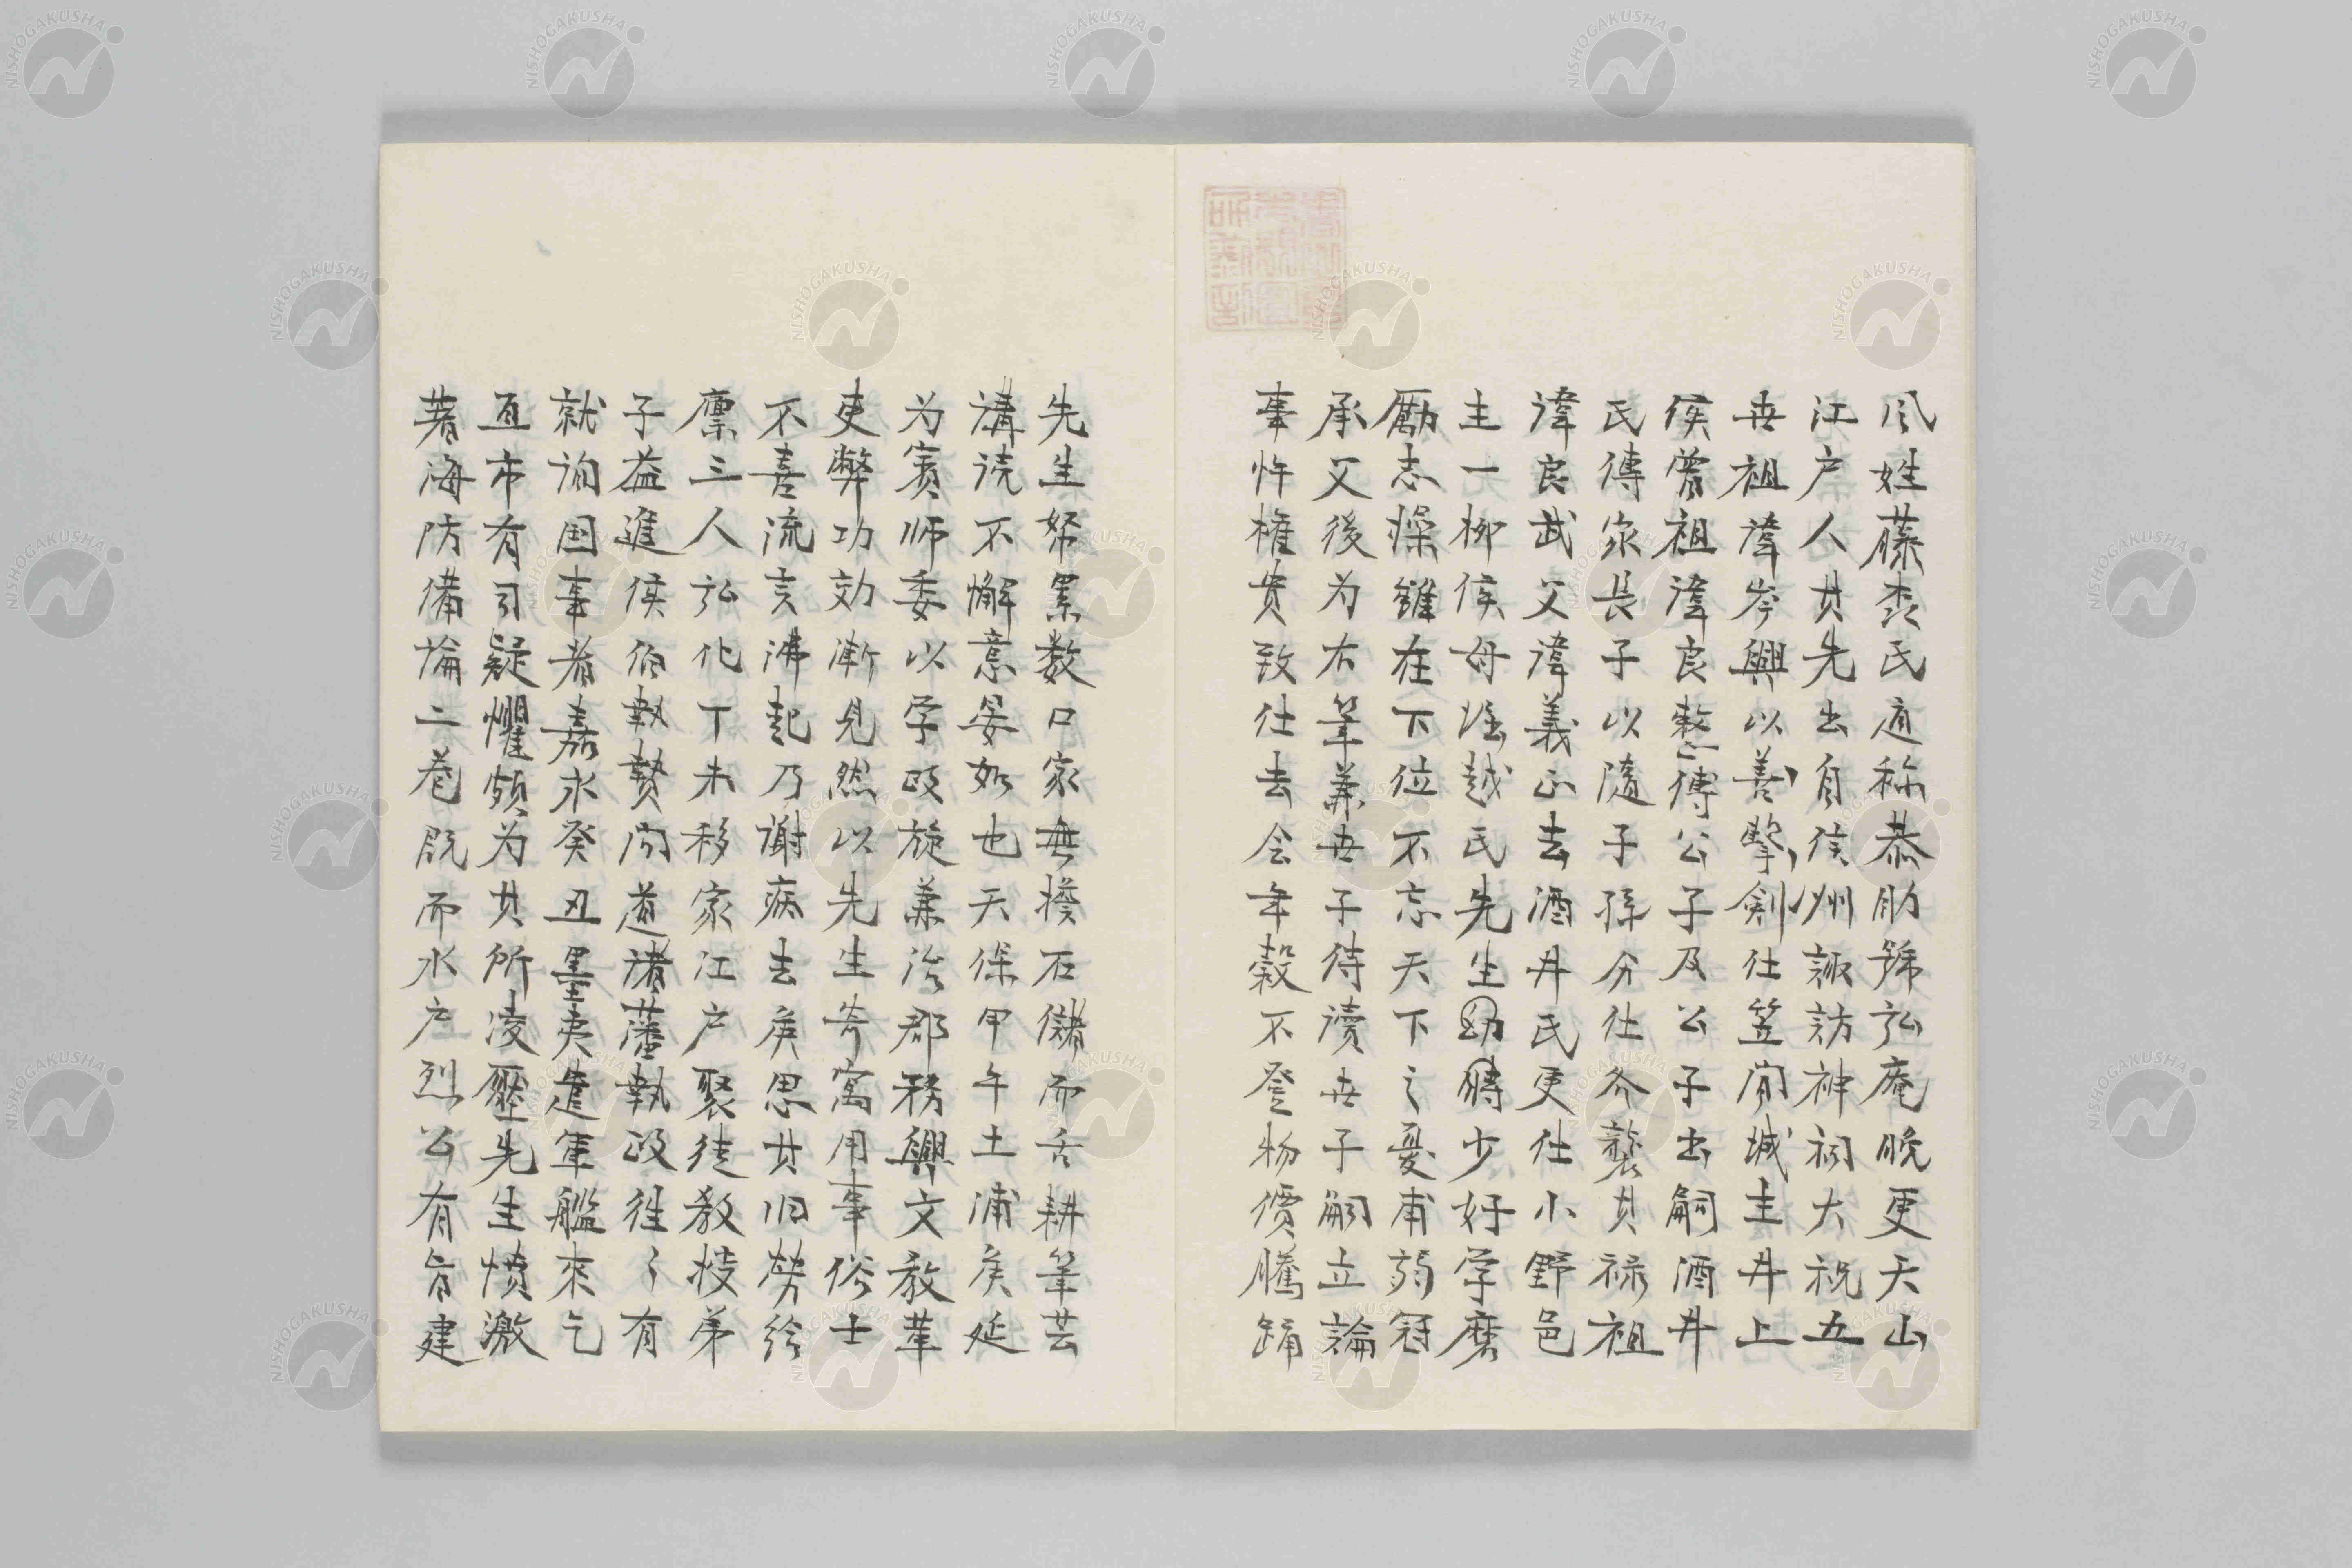 凬姓藤森氏通称恭助號弘庵晩更天山
江户人其先出自信州諏訪神祠大祝五
世祖諱岑興以善擊劍仕笠間城主井上
侯曾祖諱良整傅公子及公子出嗣酒井
氏傳家長子以隨子孫分仕各襲其禄祖
諱良武父諱義正去酒井氏更仕小野邑
主一柳侯母越氏先生幼聘少好学磨
勵志操雖在下位不忘天下之憂甫弱冠
承父後为右筆兼世子侍讀世子嗣立論
事忤権贵致仕去会年穀不登物價騰踊
先生帑累数口家無擔石儲而舌耕筆芸
講読不懈意晏如也天保甲午土浦侯延
为賓师委以学政旋兼治郡務興文教革
吏弊功効漸見然以先生寄寓用事俗士
不喜流言沸起乃謝病去侯思其旧勞給
廪三人弘化丁未移家江户聚徒教授弟
子益進侯伯執贄问道諸藩執政往々有
就詢国事者嘉永癸丑墨夷遣軍艦來乞
互市有司疑懼頗为其所凌壓先生憤激
著海防備論二巻既而水户烈公有旨建
NISHOGAKUSHA